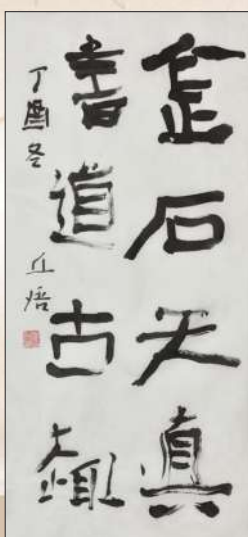 金石天真
書道古
丁酉冬 丘焙